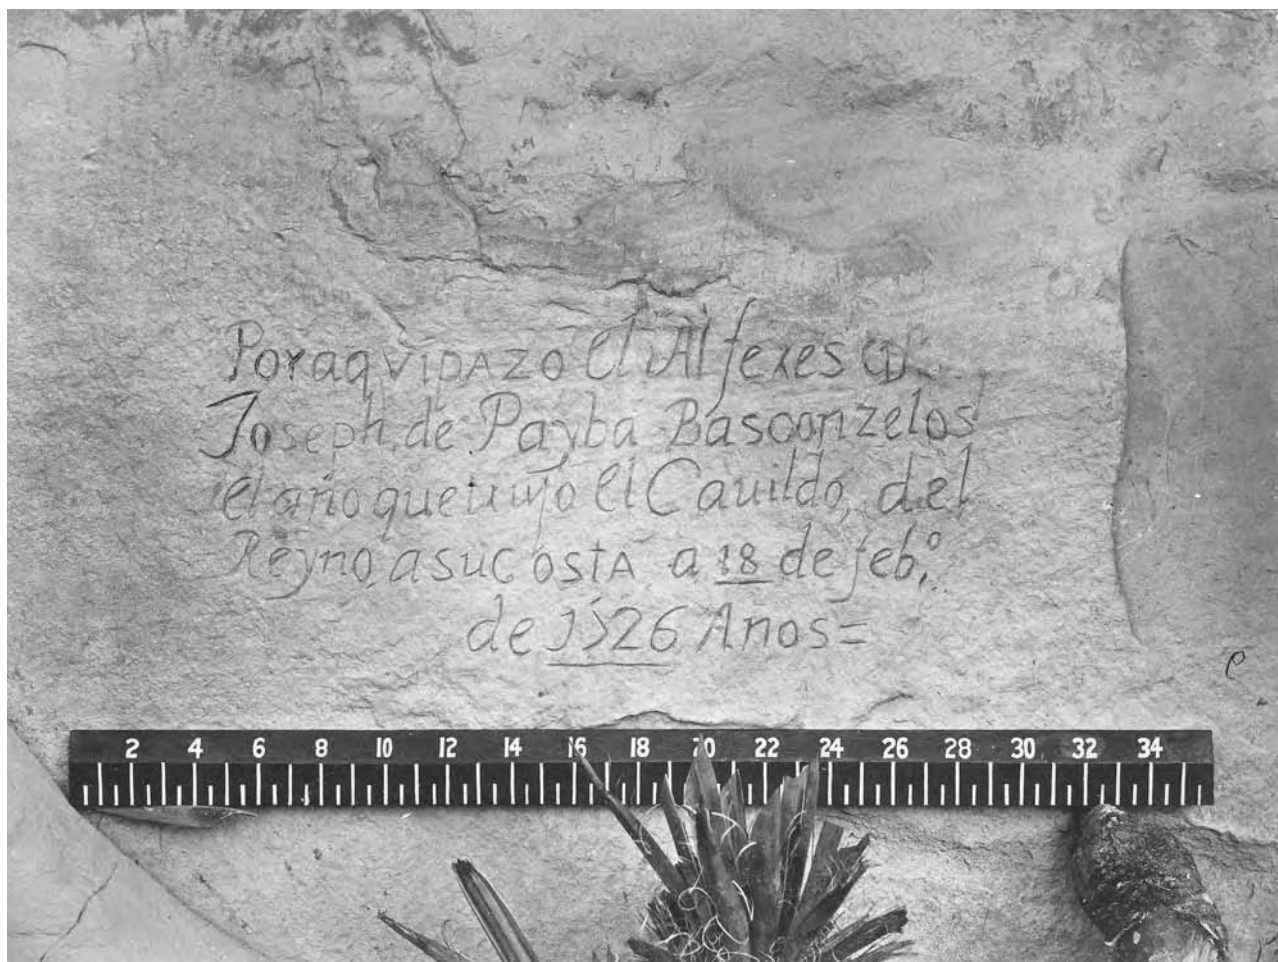 Por aqvi pazo el Alferes Dn
Joseph de Payba Basconzelos
el año que trujo el Cauildo del
Reyno a su costa a 18 de feb.º
de 1726 Años=
2 4 6 8 10 12 14 16 18 20 22 24 26 28 30 32 34
e